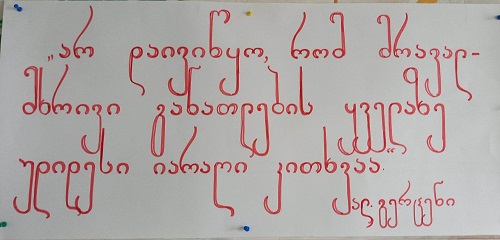 „არ დაივიწყო, რომ მრავალ-
მხრივი განათლების ყველაზე
უდიდესი იარაღი კითხვაა.“
ალ. გერცენი